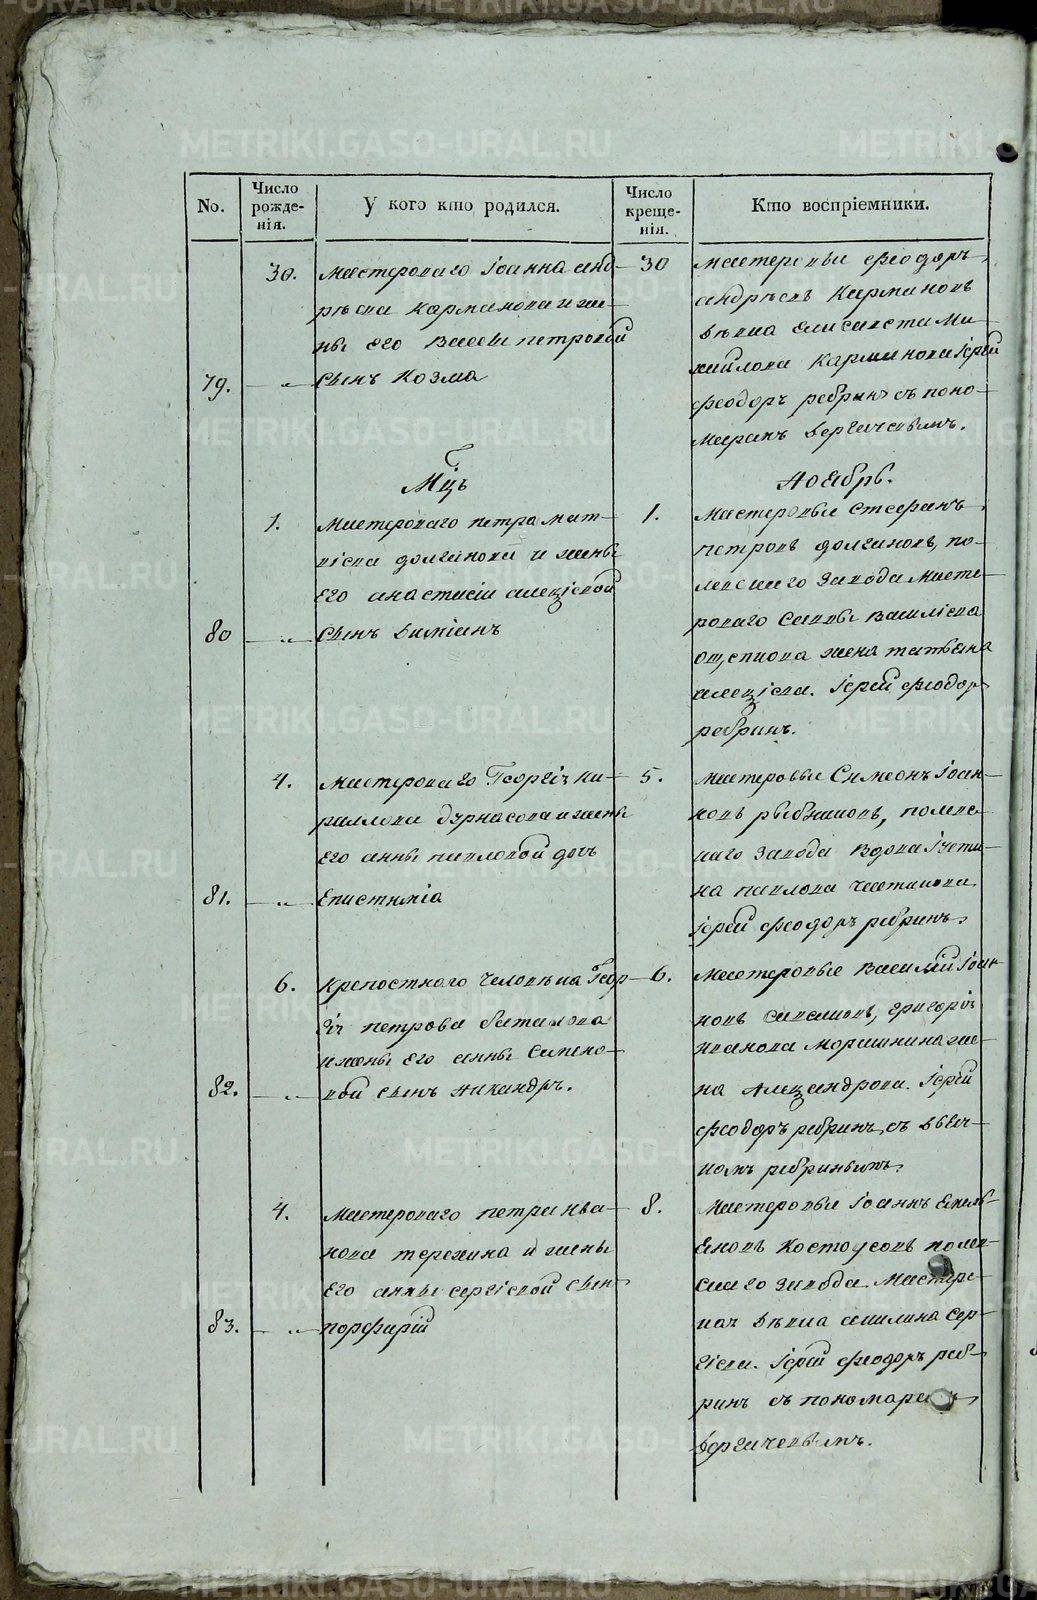 No.
Число рожденія.
У кого кто родился.
Число крещенія.
Кто воспріемники.
30.
Мастероваго Іоанна Анд-
рѣева Карманова и же-
ны его Вассы Петровой
79.
сынъ Козма
30
Мастеровыи Феодоръ
Андрѣевъ Кармановъ
дѣвка Елисавета Ми-
хайлова Карманова Іерей
Феодоръ Ребринъ съ поно-
маремъ
Мцъ
Ноябрь.
1.
Мастероваго Петра Мат-
вѣева Долганова и жены
его Анастасіи Алеѯіевой
80
сынъ Даміанъ
1.
Мастеровыи Стефанъ
Петровъ Долгановъ, по-
левскаго завода масте-
роваго Саввы Василіева
жена Татьяна
Алеѯіева. Іерей Феодоръ
Ребринъ.
4.
Мастероваго Георгія Ки-
риллова Дурнасова и жены
его Анны Павловой дочь
81.
Епистимія
5.
Мастеровые Симеонъ Іоан-
новъ Рыбниковъ, полевс-
каго завода вдова Іусти-
на Павлова
Іерей Феодоръ Ребринъ.
6.
Крепостнаго человѣка Геор-
гія Петрова Баталова
и жены его Анны Симено-
82.
вой сынъ Никандръ.
6.
Мастеровые Василій Іоан-
новъ Григорія
Иванова Морашкина же-
на Алеѯандрова. Іерей
Феодоръ Ребринъ, съ дьяч-
комъ Ребринымъ.
4.
Мастероваго Петра Ива-
нова Терехина и жены
его Анны Сергіевой сынъ
83.
Порфирій
8.
Мастеровыи Іоаннъ Емель-
яновъ Костоусовъ полев-
скаго завода. Мастерс-
кая дѣвка Акилина Сер-
гіева. Іерей Феодоръ Реб-
ринъ съ пономаремъ
METRIKI.GASO-URAL.RU